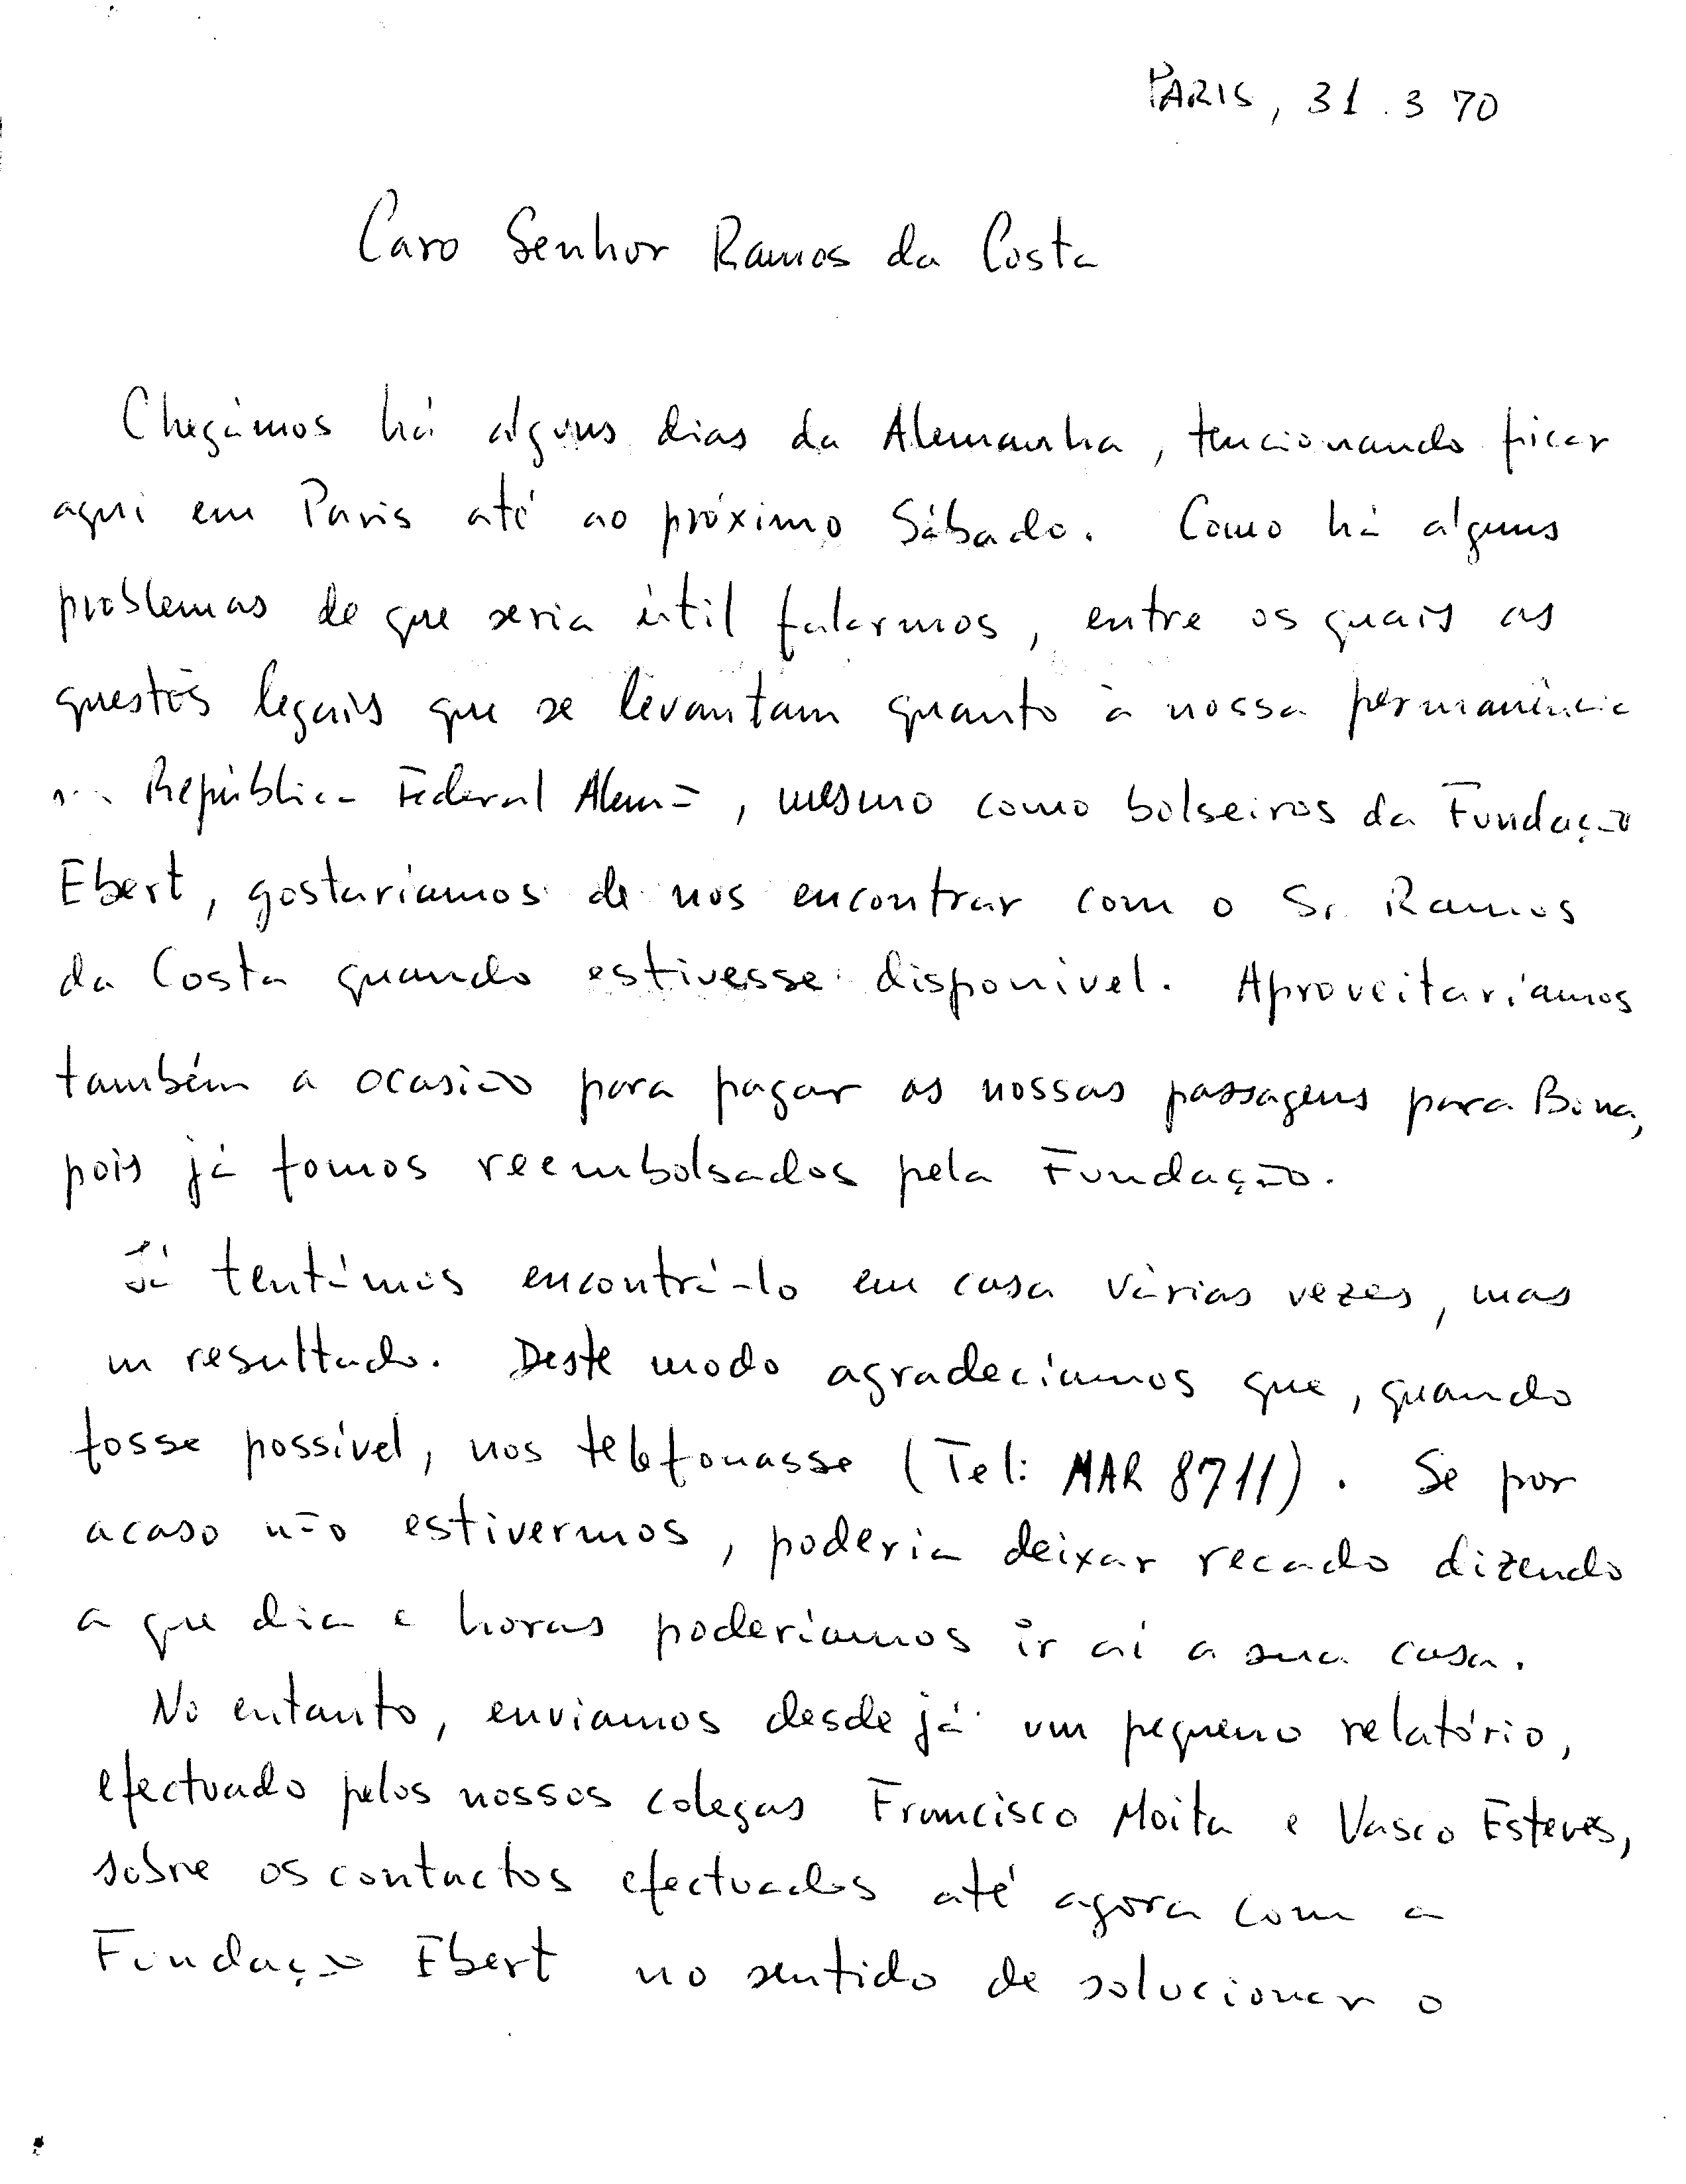 PARIS, 31.3 70
Caro Senhor Ramos da Costa
Chegámos há alguns dias da Alemanha, tencionando ficar
aqui em Paris até ao próximo Sábado. Como há alguns
problemas de que seria útil falarmos, entre os quais as
questões legais que se levantam quanto à nossa permanência
na República Federal Alemã, mesmo como bolseiros da Fundação
Ebert, gostaríamos de nos encontrar com o Sr. Ramos
da Costa quando estivesse disponível. Aproveitaríamos
também a ocasião para pagar as nossas passagens para Bona,
pois já fomos reembolsados pela Fundação.
Já tentámos encontrá-lo em casa várias vezes, mas
m resultado. Deste modo agradecíamos que, quando
fosse possível, nos telefonasse (Tel: MAR 8711). Se por
acaso não estivermos, poderia deixar recado dizendo
a que dia e horas poderíamos ir aí a sua casa.
No entanto, enviamos desde já um pequeno relatório,
efectuado pelos nossos colegas Francisco Moita e Vasco Esteves,
sobre os contactos efectuados até agora com a
Fundação Ebert no sentido de solucionar o